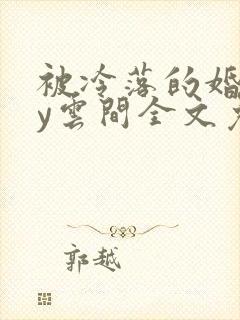 被冷落的婚
y雲間全文
郭越